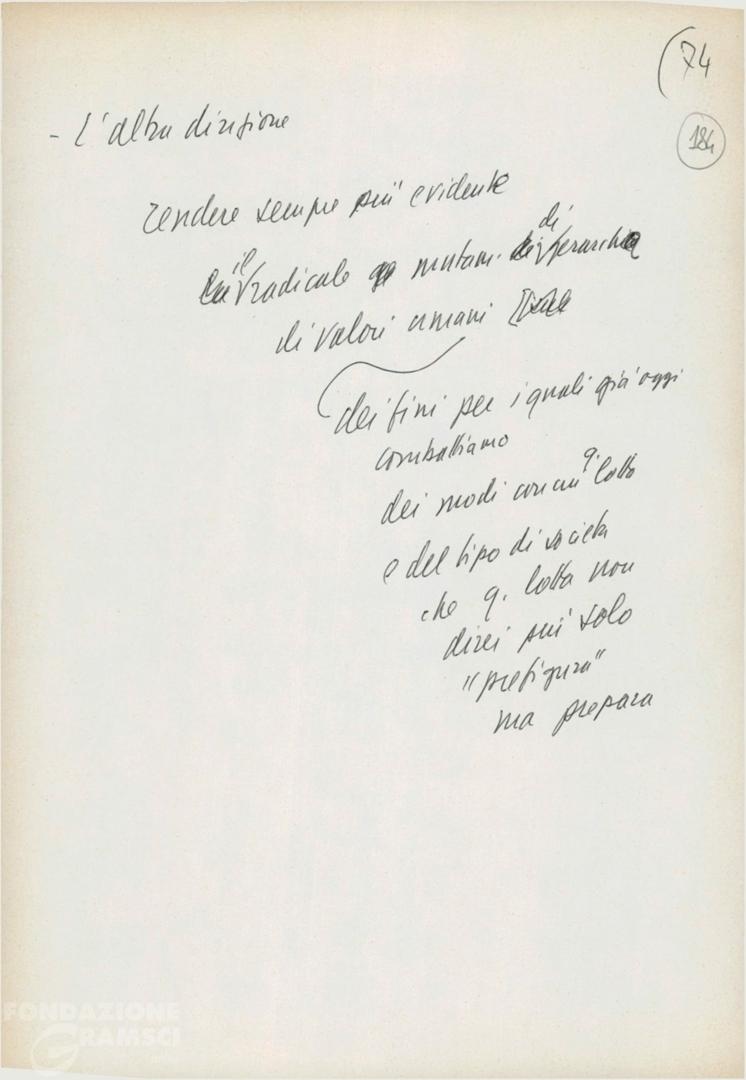 (74
184
- L'altra direzione
rendere sempre più evidente
il radicale mutam. di gerarchia
di valori umani
dei fini per i quali già oggi
combattiamo
dei modi con cui q. lotta
e del tipo di società
che q. lotta non
direi più solo
"prefigura"
ma prepara
FONDAZIONE
GRAMSCI